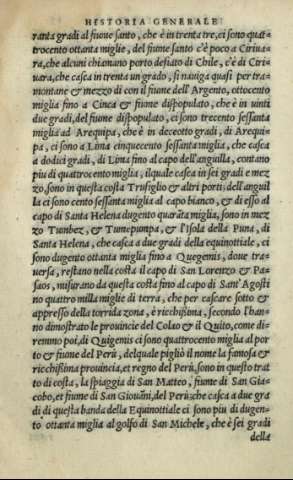 HISTORIA GENERALE
ranta gradi al fiume santo, che è in trenta tre, ci sono quat⸗
trocento ottanta miglie, del fiume santo c'è poco a Ciriua⸗
ra, che alcuni chiamano porto desiato di Chile, c'è di Ciri⸗
uara, che casca in trenta un grado, si nauiga quasi per tra⸗
montane & mezzo di con il fiume dell'Argento, ottocento
miglia fino a Cinca & fiume dispopulato, che è in uinti
due gradi, del fiume dispopulato, ci sono trecento sessanta
miglia ad Arequipa, che è in deceotto gradi, di Arequi⸗
pa, ci sono a Lima cinquecento sessanta miglia, che casca
a dodici gradi, di Lima fino al capo dell'anguilla, contano
piu di quattrocento miglia, ilquale casca in sei gradi e mez
zo, sono in questa costa Trusiglio & altri porti, dell'anguil
la ci sono cento sessanta miglia al capo bianco, & di esso al
capo di Santa Helena dugento quarāta miglia, sono in mez
zo Tumbez, & Tumepumpa, & l'Isola della Puna, di
Santa Helena, che casca a due gradi della equinottiale, ci
sono dugento ottanta miglia fino a Quegemis, doue tra⸗
uersa, restano nella costa il capo di San Lorenzo & Pa⸗
saos, misurano da questa costa fino al capo di Sant'Agosti
no quattro milla miglie di terra, che per cascare sotto &
appresso della torrida zona, è ricchissima, secondo l'han⸗
no dimostrato le prouincie del Colao & il Quito, come di⸗
remmo poi, di Quigemis ci sono quattrocento miglia al por
to & fiume del Perù, delquale pigliò il nome la famosa &
ricchissima prouincia, et regno del Perù, sono in questo trat
to di costa, la spiaggia di San Matteo, fiume di San Gia⸗
cobo, et fiume di San Giouāni, del Perù che casca a due gra
di di questa banda della Equinottiale ci sono piu di dugen⸗
to ottanta miglia al golfo di San Michele, che è sei gradi
della